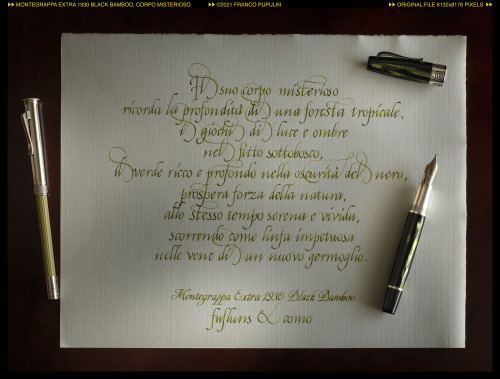 MONTEGRAPPA EXTRA 1930 BLACK BAMBOO, CORPO MISTERIOSO ©2021 FRANCO PUPULIN ORIGINAL FILE 8132x8176 PIXELS
Il suo corpo misterioso
ricorda la profondità di una foresta tropicale,
i giochi di luce e ombre
nel fitto sottobosco,
il verde ricco e profondo nella oscurità del nero,
prospera forza della natura,
allo stesso tempo serena e vivida,
scorrendo come linfa impetuosa
nelle vene di un nuovo germoglio.
Montegrappa Extra 1930 Black Bamboo